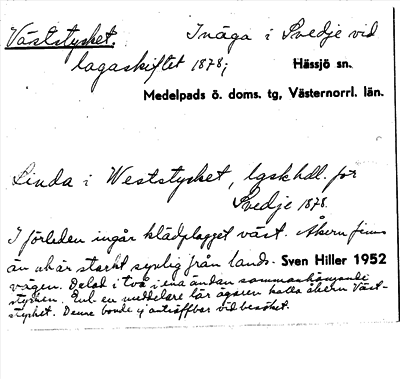 Väststycket. Inäga i Svedje vid
lagaskiftet 1878;
Hässjö sn.
Medelpads ö. doms. tg, Västernorrl. län.
Linda i Weststycket, lgskhdl. för
Svedje 1878.
I förleden ingår klädplagget väst. Åkern finns
än och är starkt synlig från lands-
Sven Hiller 1952
vägen. Delad i två i ena ändan sammanhängande
stycken. Enl. en meddelare lär ägaren kalla åkern Väst-
stycket. Denne bonde ej anträffbar vid besöket.